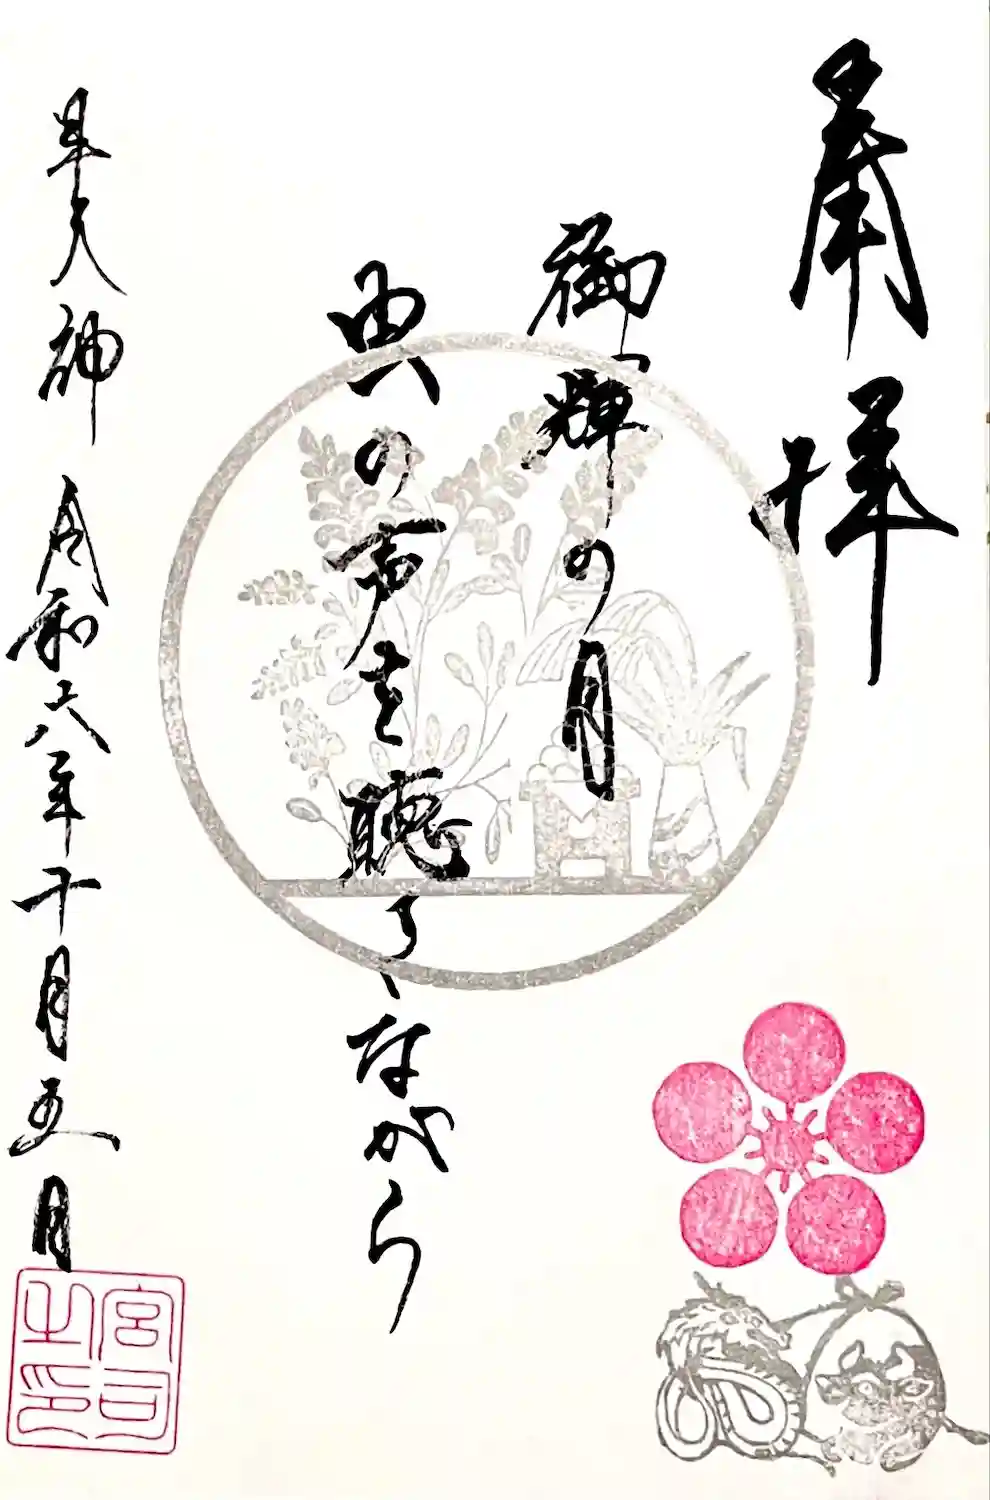 奉拝
御輝の月
典の声を聴くながら
早天神 令和六年十月五日
宮司之印